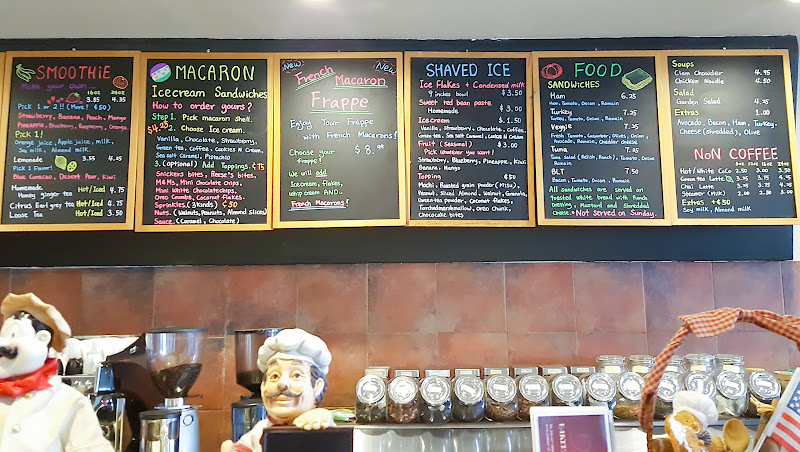 SMOOTHiE
Make your own!
16oz 24oz
3.85 4.35
Pick 1 or 2!! (More? $50)
Strawberry, Banana, Peach, Mango
Pineapple, Blueberry, Raspberry, Orange
Pick 1!
Orange juice, Apple juice, milk,
Soy milk, Almond milk.
Lemonade 3.55 4.35
Pick 1 Flavor!
Blue Curacao, Desert Pear, Kiwi
Homemade Hot/iced 4.75
Honey ginger tea
Citrus Earl grey tea Hot/iced 4.75
Loose Tea Hot/iced 3.50
MACARON
Icecream Sandwiches
How to order yours?
$4.25
Step 1. Pick macaron shell.
2. Choose Ice cream.
Vanilla, Chocolate, Strawberry,
Green tea, Coffee, Cookies N Cream,
Sea salt Caramel, Pistachio
3. (optional) Add Toppings. $75
Snickers bites, Reese's bites,
M&Ms, Mini Chocolate chips,
Mini White chocolate chips,
Oreo Crumbs, Coconut Flakes.
Sprinkles. (3 kinds) $50
Nuts. (Walnuts, Peanuts, Almond slices)
Sauce. (Caramel, Chocolate)
New!
New
French
Macaron
Frappe
Enjoy Your Frappe
with French Macarons!
Choose your
Frappe!
$8.99
We will add
Icecream, flakes,
whip cream AND..
French Macarons!
SHAVED ICE
Ice Flakes + Condensed milk
9 inches bowl $3.50
Sweet red bean paste
Homemade $3.00
Icecream $1.50
Vanilla, Strawberry, Chocolate, Coffee,
Green Tea, Sea salt Caramel, Cookies N Cream
Fruit (Seasonal) $3.00
Pick whatever you want!
Strawberry, Blueberry, Pineapple, Kiwi
Banana, Mango
Topping $50
Mochi, Roasted grain powder (Misu),
Peanut, Sliced Almond, Walnut, Granola,
Green tea powder, Coconut flakes,
Torched marshmallow, Oreo Chunk,
Chococake bites
FOOD
SANDWICHES
Ham 6.75
Ham, Tomato, Onion, Romain
Turkey 7.25
Turkey, Tomato, Onion, Romain
Veggie 7.25
Fresh Tomato, Cucumber, Olives, Onion,
Avocado, Romain, Cheddar cheese
Tuna 7.25
Tuna Salad (Relish, Ranch), Tomato, Onion
Romain
BLT 7.50
Bacon, Tomato, Onion, Romain
All sandwiches are served on
toasted white bread with Ranch
Dressing, Mustard and Shredded
Cheese. *Not Served on Sunday.
Soups
Clam Chowder 4.95
Chicken Noodle 4.50
Salad
Garden Salad 4.25
Extras 1.00
Avocado, Bacon, Ham, Turkey,
Cheese (shredded), Olive
NoN COFFEE
Hot/White CoCo 2.50 3.00 3.50
Green tea Latte 3.25 3.75 4.75
Chai Latte 3.25 3.75 4.25
Steamer (Milk) 2.00 2.50 3.00
Extras +$50
Soy milk, Almond milk